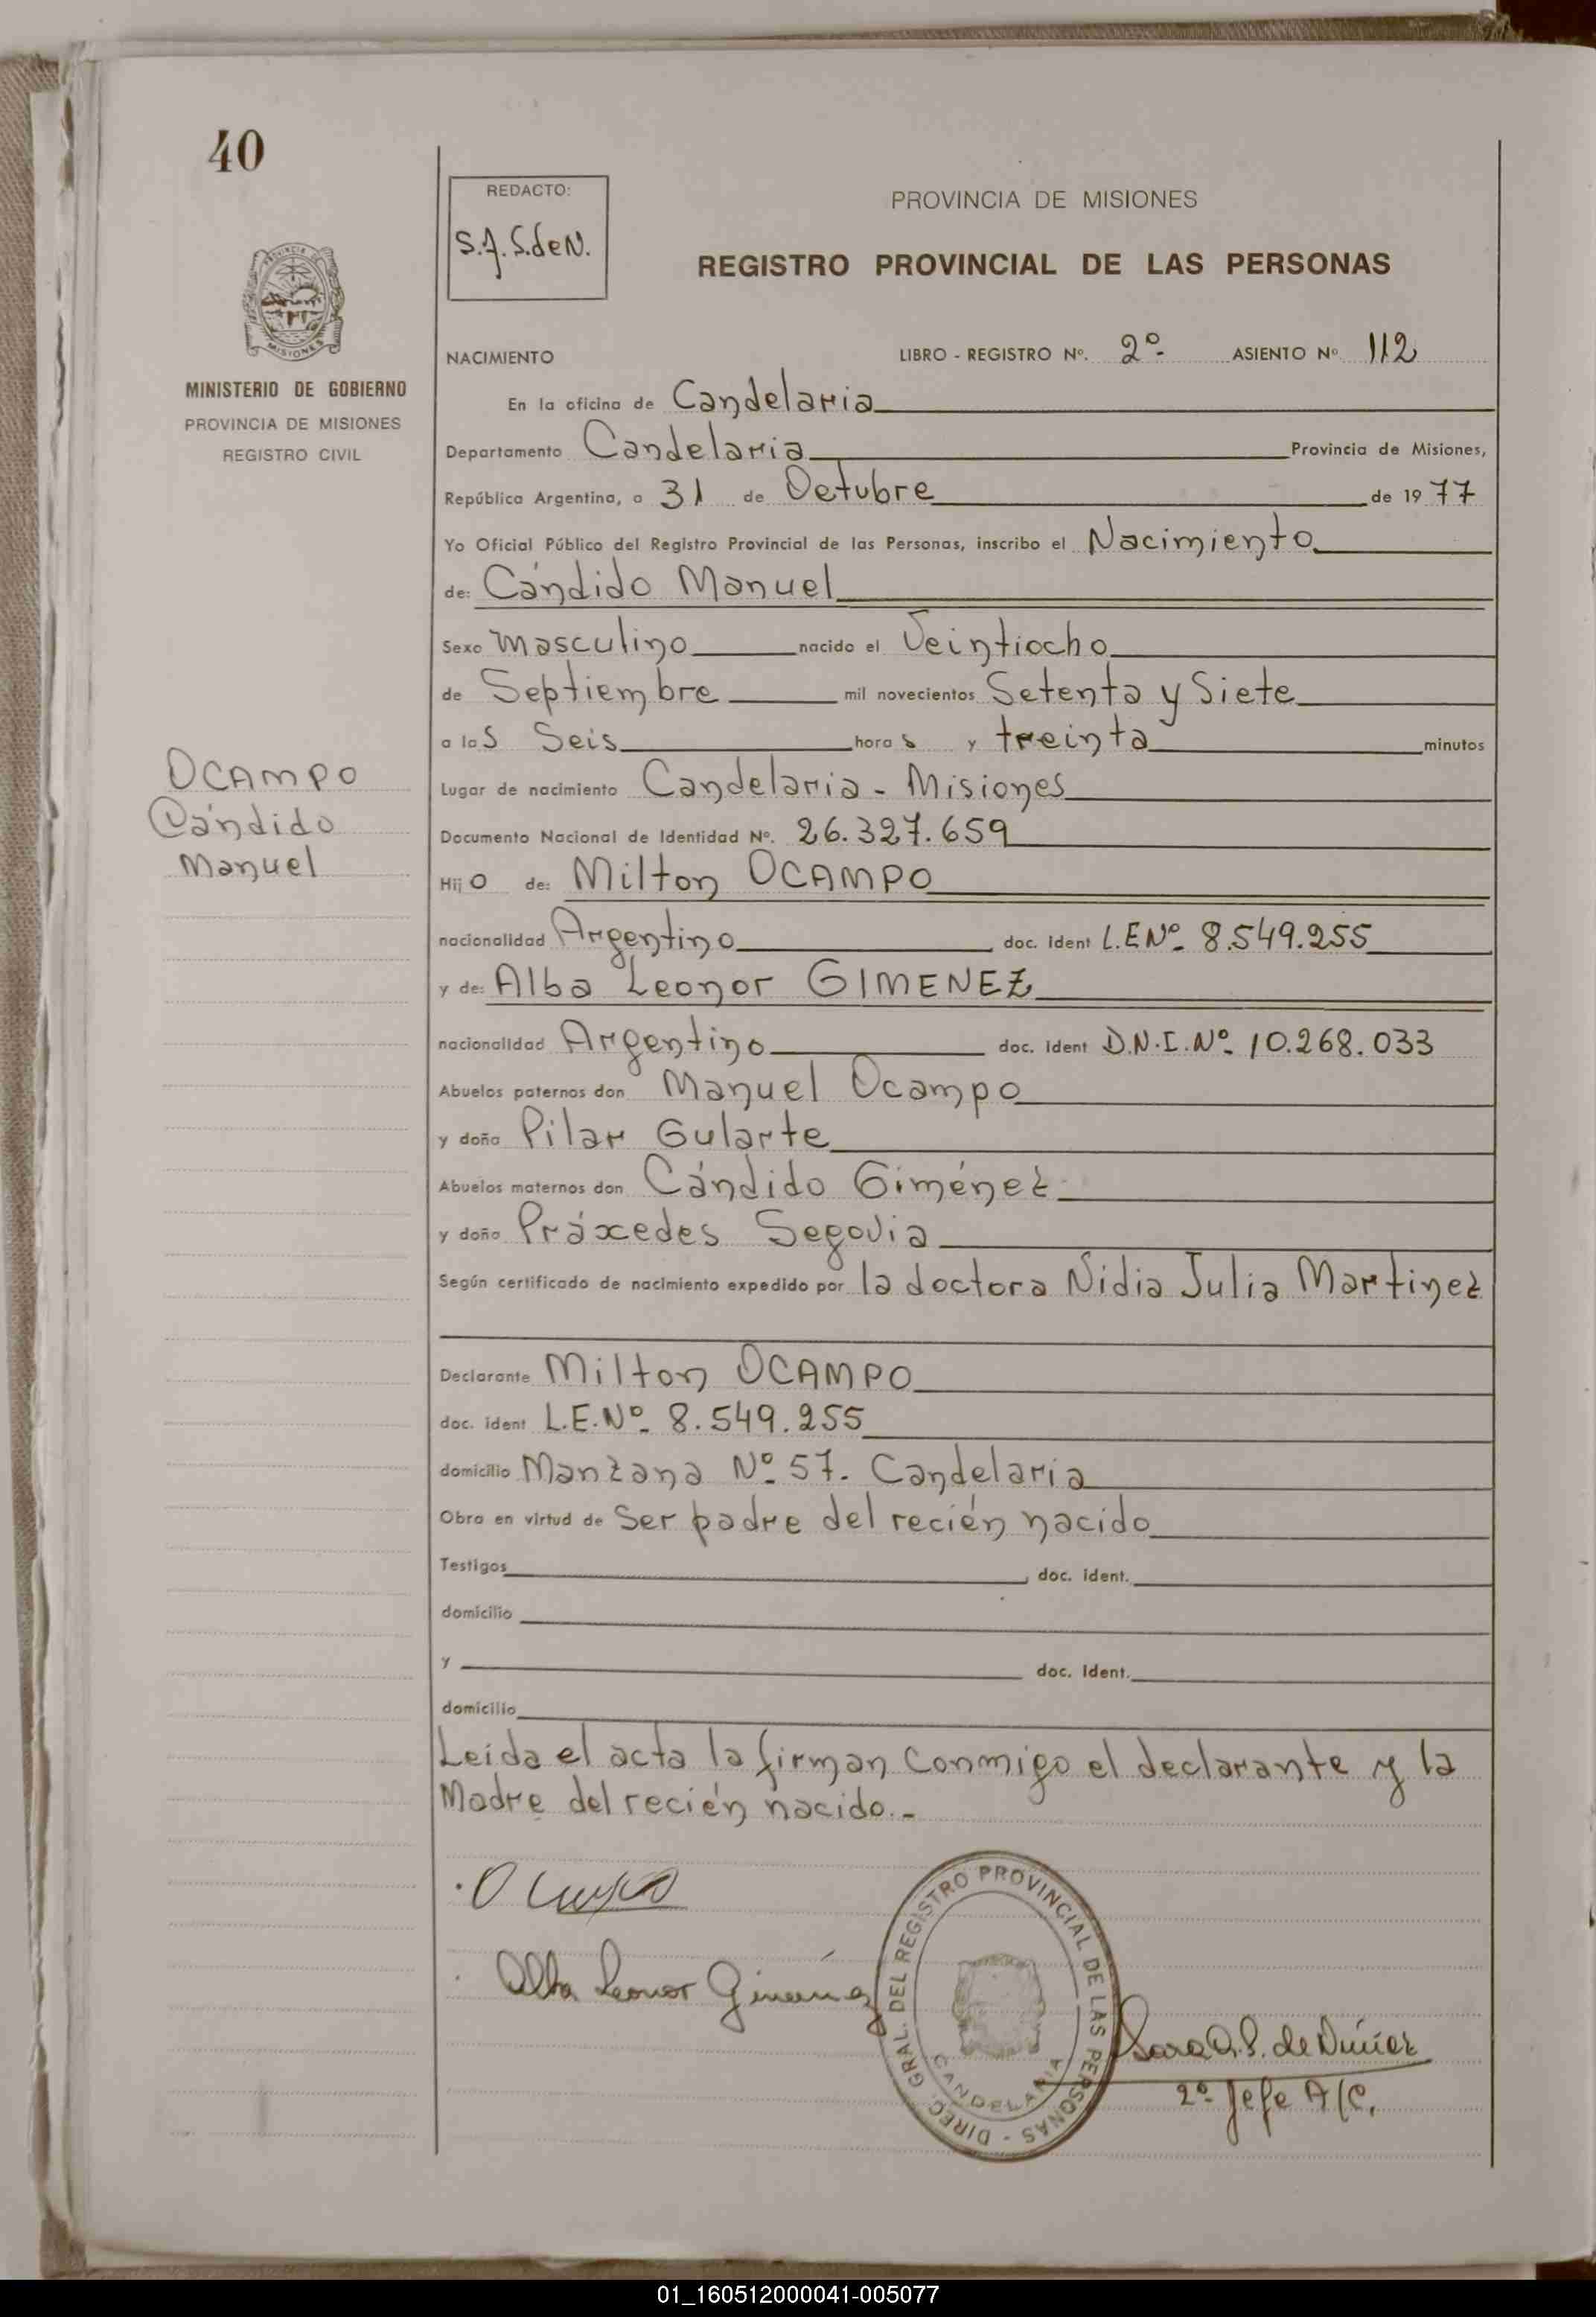 40
REDACTO:
S.A.S.deN.
PROVINCIA DE MISIONES
REGISTRO PROVINCIAL DE LAS PERSONAS
MISIONES
MINISTERIO DE GOBIERNO
PROVINCIA DE MISIONES
REGISTRO CIVIL
NACIMIENTO LIBRO - REGISTRO Nº. 2º- ASIENTO Nº 112
En la oficina de Candelaria
Departamento Candelaria Provincia de Misiones,
República Argentina, a 31 de Octubre de 1977
Yo Oficial Público del Registro Provincial de las Personas, inscribo el Nacimiento
de: Cándido Manuel
Sexo Masculino nacido el Veintiocho
de Septiembre mil novecientos Setenta y Siete
a las Seis horas y treinta minutos
Lugar de nacimiento Candelaria - Misiones
Documento Nacional de Identidad Nº. 26.327.659
Hijo de: Milton OCAMPO
nacionalidad Argentino doc. ident L.E.Nº- 8.549.255
y de: Alba Leonor GIMENEZ
nacionalidad Argentino doc. ident D.N.I.Nº- 10.268.033
Abuelos paternos don Manuel Ocampo
y doña Pilar Gularte
Abuelos maternos don Cándido Giménez
y doña Práxedes Segovia
Según certificado de nacimiento expedido por la doctora Nidia Julia Martinez
Declarante Milton OCAMPO
doc. ident L.E.Nº- 8.549.255
domicilio Manzana Nº- 57. Candelaria
Obra en virtud de Ser padre del recién nacido
Testigos doc. ident.
domicilio
y doc. ident.
domicilio
Leida el acta la firman conmigo el declarante y la
Madre del recién nacido.-
OCAMPO
Cándido
Manuel
Alba Leonor Gimenez
DIREC. GRAL. DEL REGISTRO PROVINCIAL DE LAS PERSONAS -
CANDELARIA
Sara A.S. de Núñez
2º- Jefe A/C.
01_160512000041-005077